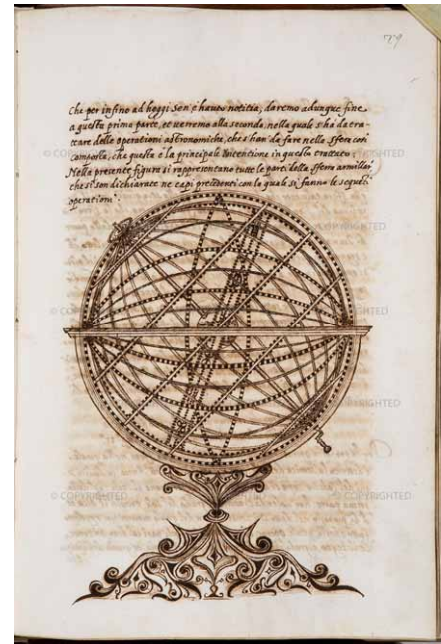 79
Che per infino ad hoggi sen'è hauuto notitia, daremo adunque fine
a questa prima parte, et uerremo alla seconda, nella quale s'ha da tra-
ttare delle operationi astronomiche, che s'han'da fare nella sfera così
composta, che questa è la principale intentione in questo trattato
Nella presente figura si rappresentano tutte le parti della sfera armillar,
che si son dichiarate ne capi precedenti con le quale si fanno le sequēti
operationi
© COPYRIGHTED
© COPYRIGHTED
© COPYRIGHTED
© COPYRIGHTED
© COPYRIGHTED